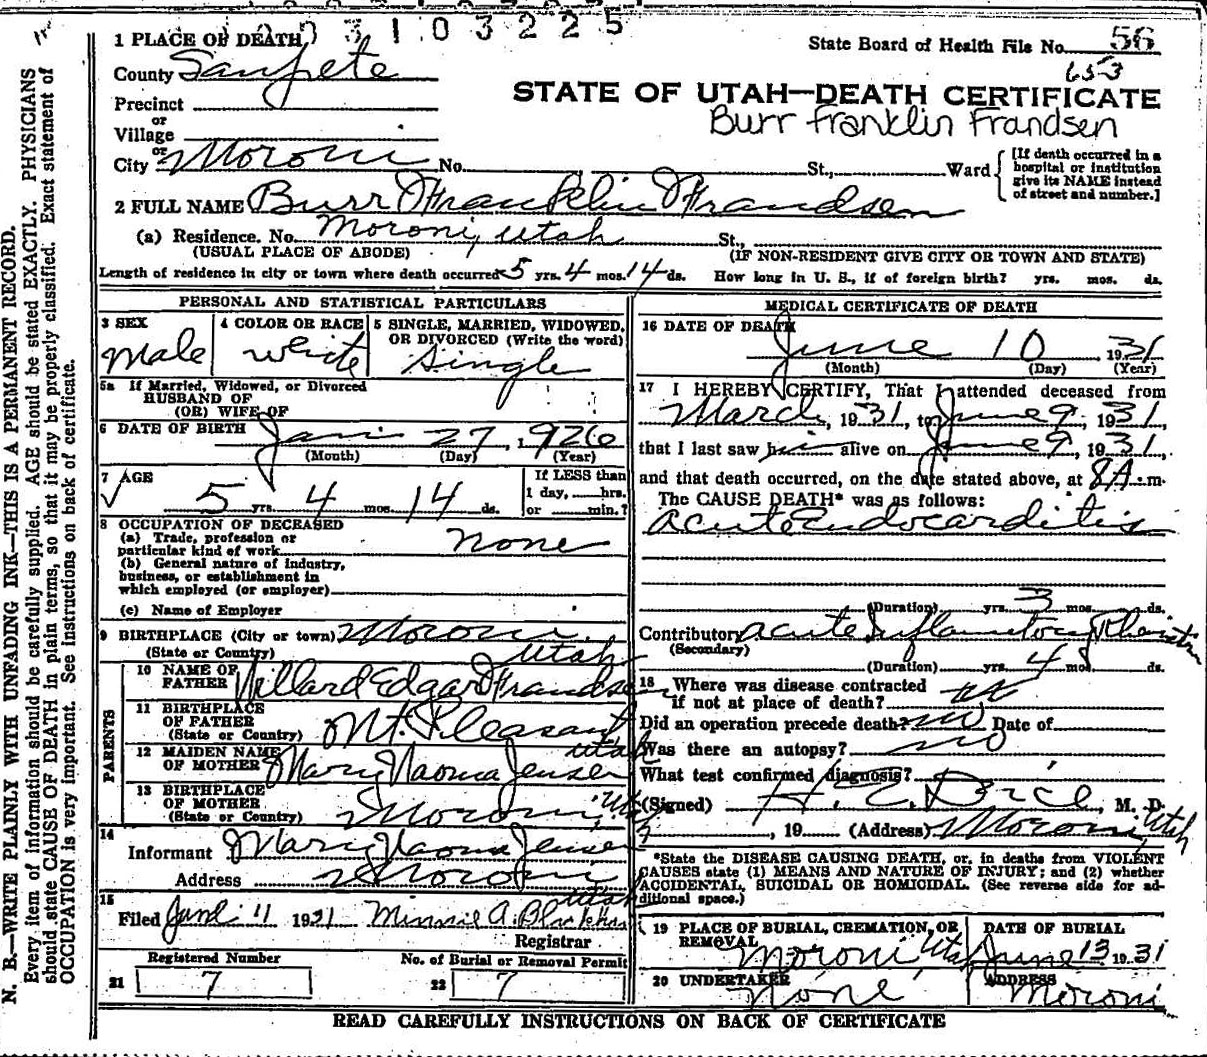 3 1 0 3 2 2 5
1 PLACE OF DEATH
State Board of Health File No. 56
County Sanpete
653
STATE OF UTAH—DEATH CERTIFICATE
Precinct
or
Village
Burr Franklin Frandsen
or
City Moroni No. St., Ward
[If death occurred in a
hospital or institution
give its NAME instead
of street and number.]
2 FULL NAME Burr Franklin Frandsen
(a) Residence. No. Moroni, Utah St.,
(USUAL PLACE OF ABODE) (IF NON-RESIDENT GIVE CITY OR TOWN AND STATE)
Length of residence in city or town where death occurred 5 yrs. 4 mos. 14 ds. How long in U. S., if of foreign birth? yrs. mos. ds.
PERSONAL AND STATISTICAL PARTICULARS
3 SEX
Male
4 COLOR OR RACE
white
5 SINGLE, MARRIED, WIDOWED,
OR DIVORCED (Write the word)
Single
5a If Married, Widowed, or Divorced
HUSBAND OF
(OR) WIFE OF
6 DATE OF BIRTH Jan 27, 1926
(Month) (Day) (Year)
7 AGE
5 yrs. 4 mos. 14 ds.
If LESS than
1 day, hrs.
or min.?
8 OCCUPATION OF DECEASED
(a) Trade, profession or
particular kind of work none
(b) General nature of industry,
business, or establishment in
which employed (or employer)
(c) Name of Employer
9 BIRTHPLACE (City or town) Moroni
(State or Country) Utah
PARENTS
10 NAME OF
FATHER Willard Edgar Frandsen
11 BIRTHPLACE
OF FATHER
(State or Country) Mt. Pleasant Utah
12 MAIDEN NAME
OF MOTHER Mary Naoma Jensen
13 BIRTHPLACE
OF MOTHER
(State or Country) Moroni, Utah
14
Informant Mary Naoma Jensen
Address Moroni Utah
15
Filed June 11 1931 Minnie A.
Registrar
Registered Number
21 7
No. of Burial or Removal Permit
22 7
MEDICAL CERTIFICATE OF DEATH
16 DATE OF DEATH
June 10 1931
(Month) (Day) (Year)
17 I HEREBY CERTIFY, That I attended deceased from
March, 1931, to June 9, 1931,
that I last saw him alive on June 9, 1931,
and that death occurred, on the date stated above, at 8 A.m.
The CAUSE DEATH* was as follows:
Acute Endocarditis
(Duration) yrs. 3 mos. ds.
Contributory Acute Inflamatory
(Secondary)
(Duration) yrs. 4 mos. ds.
18 Where was disease contracted
if not at place of death?
Did an operation precede death? no Date of
Was there an autopsy? no
What test confirmed diagnosis?
(Signed) H. C. Dice, M. D.
, 19 (Address) Moroni, Utah
*State the DISEASE CAUSING DEATH, or, in deaths from VIOLENT
CAUSES state (1) MEANS AND NATURE OF INJURY; and (2) whether
ACCIDENTAL, SUICIDAL OR HOMICIDAL. (See reverse side for ad-
ditional space.)
19 PLACE OF BURIAL, CREMATION, OR
REMOVAL
Moroni, Utah
DATE OF BURIAL
June 13 1931
20 UNDERTAKER
None
ADDRESS
Moroni
READ CAREFULLY INSTRUCTIONS ON BACK OF CERTIFICATE
N. B.—WRITE PLAINLY WITH UNFADING INK—THIS IS A PERMANENT RECORD.
Every item of information should be carefully supplied. AGE should be stated EXACTLY. PHYSICIANS
should state CAUSE OF DEATH in plain terms, so that it may be properly classified. Exact statement of
OCCUPATION is very important. See instructions on back of certificate.